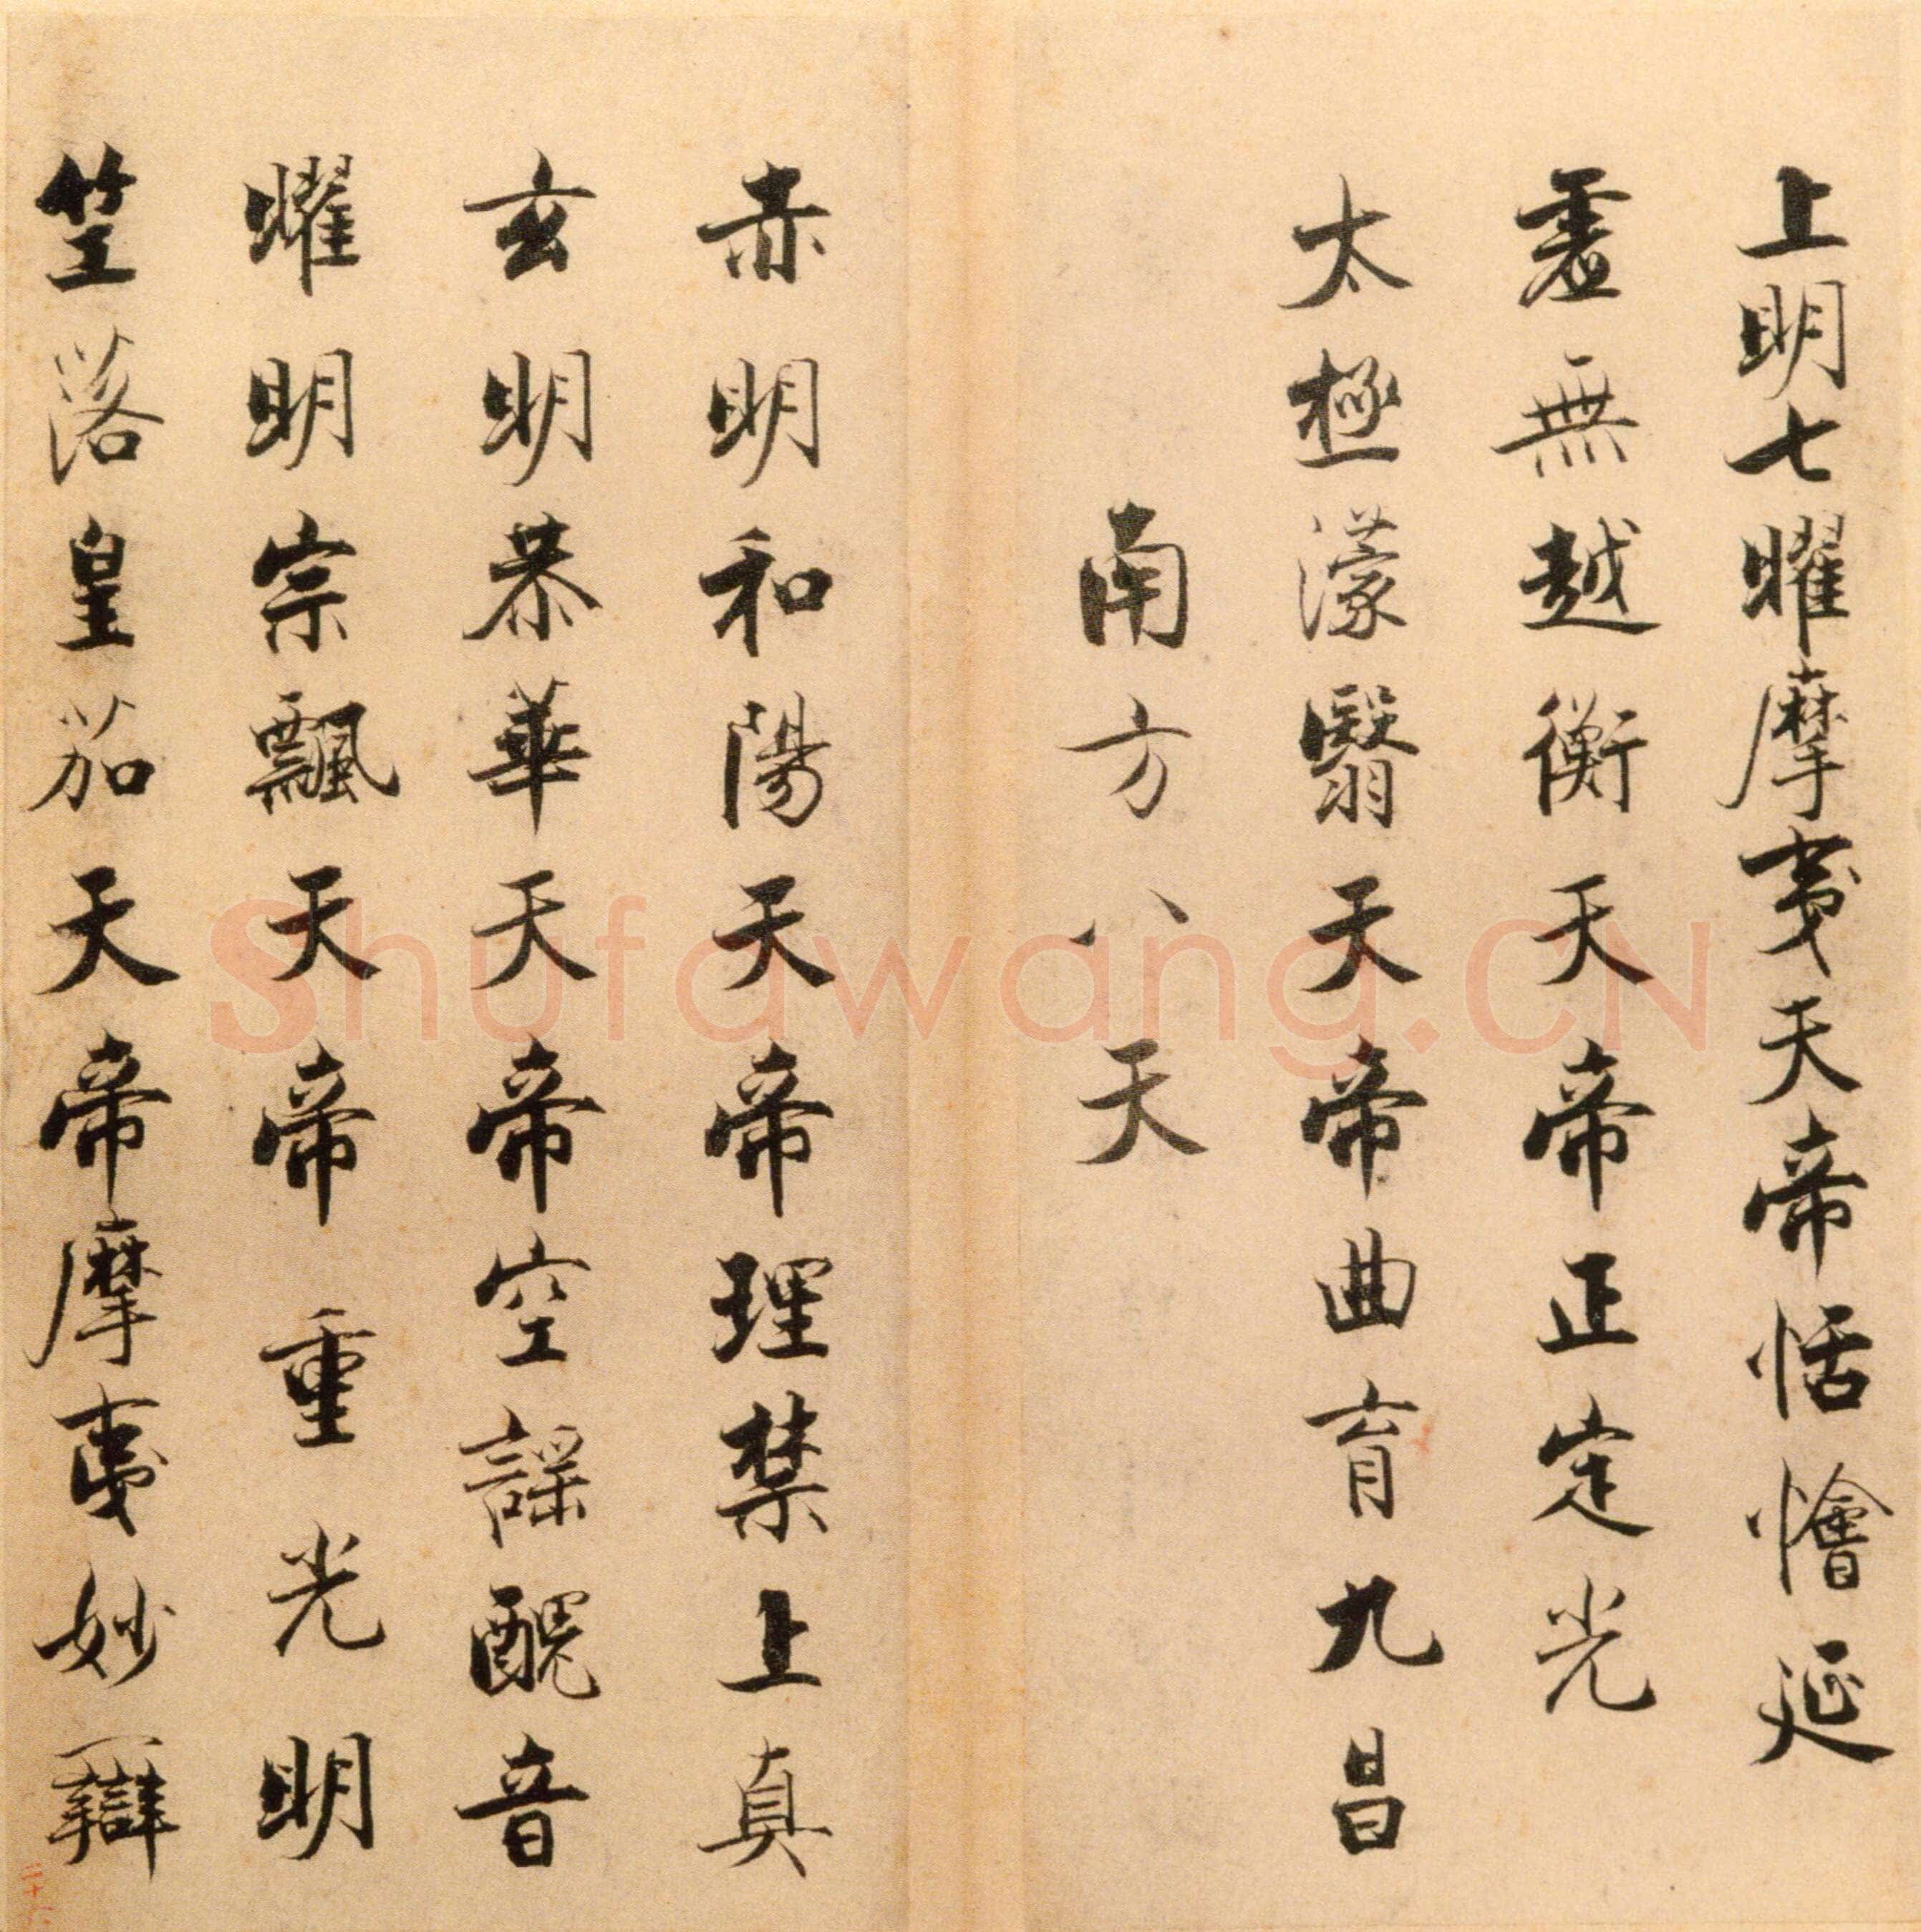 上明七曜摩夷天帝恬憺延
虛無越衡天帝正定光
太極濛翳天帝曲育九昌
南方八天
赤明和陽天帝理禁上真
玄明恭華天帝空謡醜音
曜明宗飄天帝重光明
笁落皇茄天帝摩夷妙辯
shufawang.CN
二十六